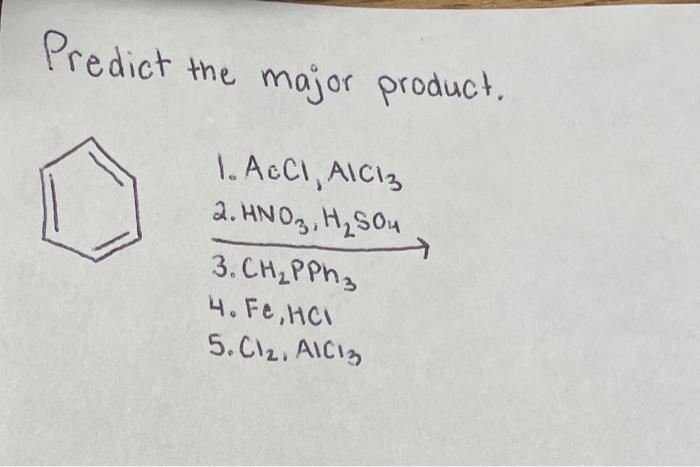 Predict the major product.
1. AcCl, AlCl3
2. HNO3, H2SO4
3. CH2PPh3
4. Fe, HCl
5. Cl2, AlCl3